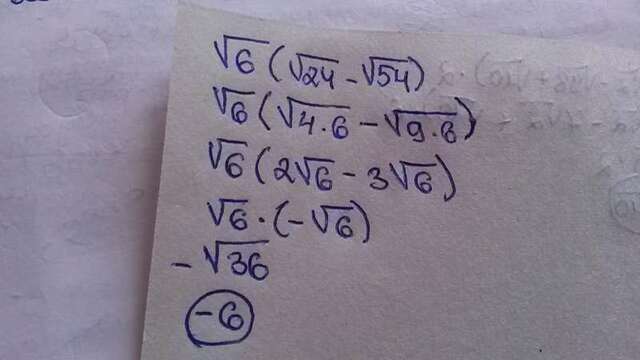 √6(√24-√54)
√6(√4·6-√9·6)
√6(2√6-3√6)
√6·(-√6)
-√36
-6